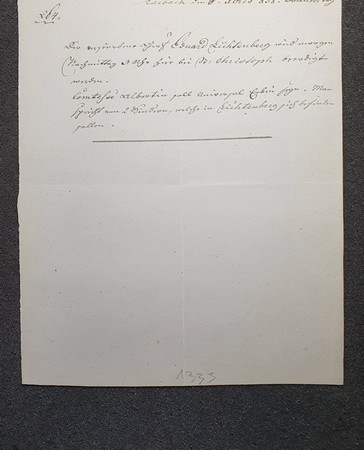 Laibach den
264.
Der verstorbene Graf Eduard Lichtenberg wird morgen
Nachmittag 3 Uhr hier bei St. Christoph beerdigt
werden.
Comtesse Albertin soll Universal Erbin seyn. Man
spricht von 2 Kindern, welche in Lichtenberg sich befinden
sollen.
1333